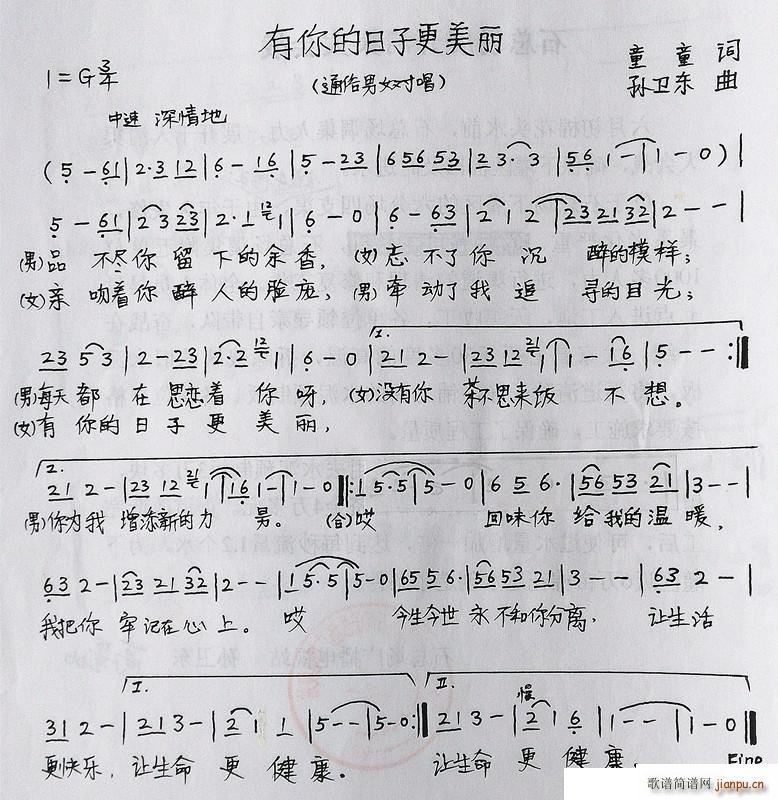 有你的日子更美丽
1=G 3/4
(通俗男女对唱)
童童 词
孙卫东 曲
中速 深情地
(5-61|2·312|6-16|5-23|65653|23·3|561|1-0)|
5-61|2323|2·1121|6-0|6-63|212|2321132|2--|
(男)品 不尽你 留 下的余香, (女)忘 不了你 沉 醉的模样;
(女)亲 吻着你 醉 人的脸庞; (男)牵 动了我 追 寻的目光;
1.
23 53|2-23|2·212|6-0|212-|2312211|1-16|5--:||
(男)每天 都 在 思恋着 你 呀, (女)没有你 茶不思来饭 不 想。
(女)有 你的日子 更 美 丽,
2.
212-|2312211|161-|1-0||:15·5|5-0|656·|565321|3--|
(男)你为我 增添新的力 男。 (合)哎 回味你 给我的温 暖,
632-|232132|2--|15·5|5-0|65656·|565321|3--|632-|
我把你 牢记在心上。 哎 今生今世 永不和你分离, 让生活
I.
II.
慢
312-|213-|211|5--|5-0:||213-|216|1--|1-0||
更快乐, 让生命 更 健 康。 让生命 更 健 康。
Fine
歌谱简谱网
jianpu.cn